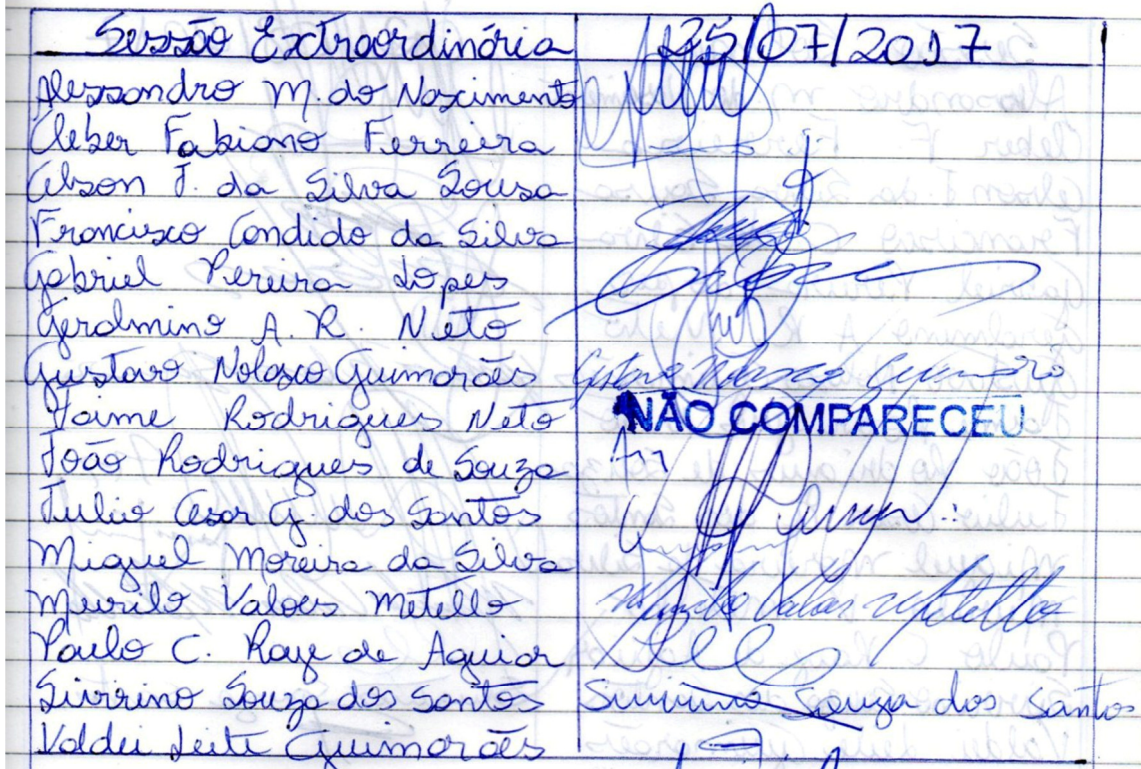 Sessão Extraordinária 25/07/2017
Alessandro M. do Nascimento
Cleber Fabiano Ferreira
Celson J. da Silva Sousa
Francisco Candido da Silva
Gabriel Pereira Lopes
Gerolmino A. R. Neto
Gustavo Nolasco Guimarães Gustavo Nolasco Guimarães
Jaime Rodrigues Neto NÃO COMPARECEU
João Rodrigues de Souza
Julio Cesar G. dos Santos
Miguel Moreira da Silva
Murilo Valoes Metello Murilo Valoes Metello
Paulo C. Raye de Aguiar
Sivirino Souza dos Santos Sivirino Souza dos Santos
Valdei Leite Guimarães